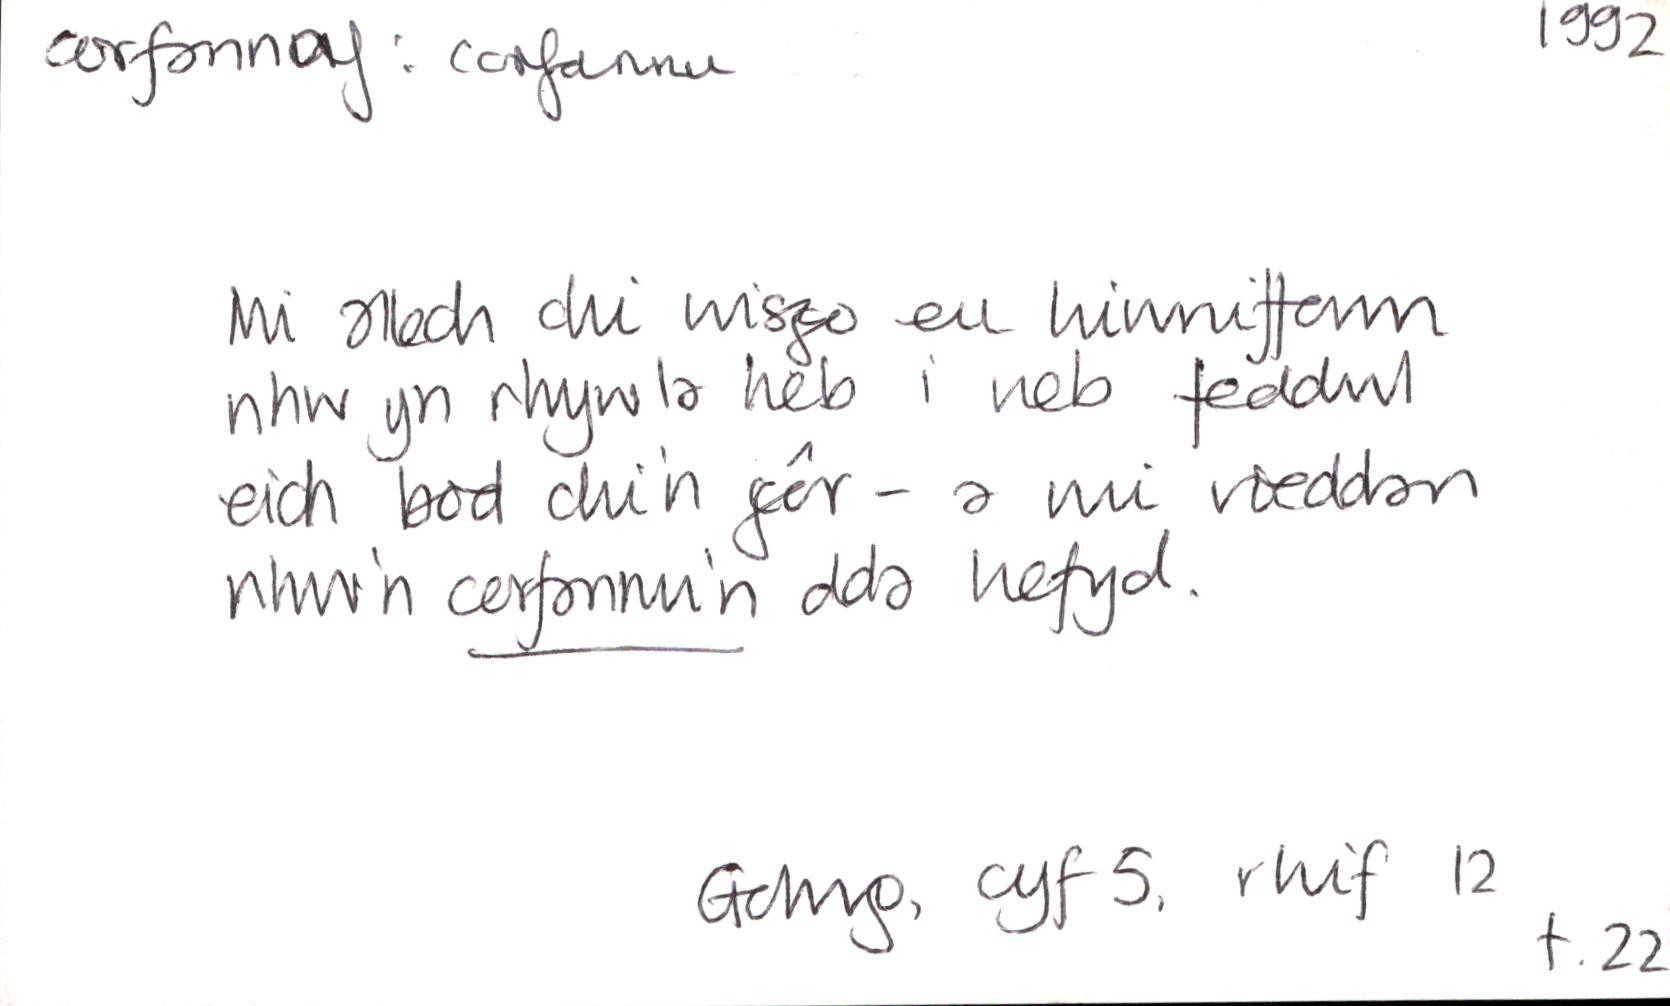 carfannaf: carfannu
1992
Mi allech chi wisgo eu hiwnifform
nhw yn rhywle heb i neb feddwl
eich bod chi'n gôr – a mi roedden
nhw'n carfannu'n dda hefyd.
Golwg, cyf 5, rhif 12
t. 22